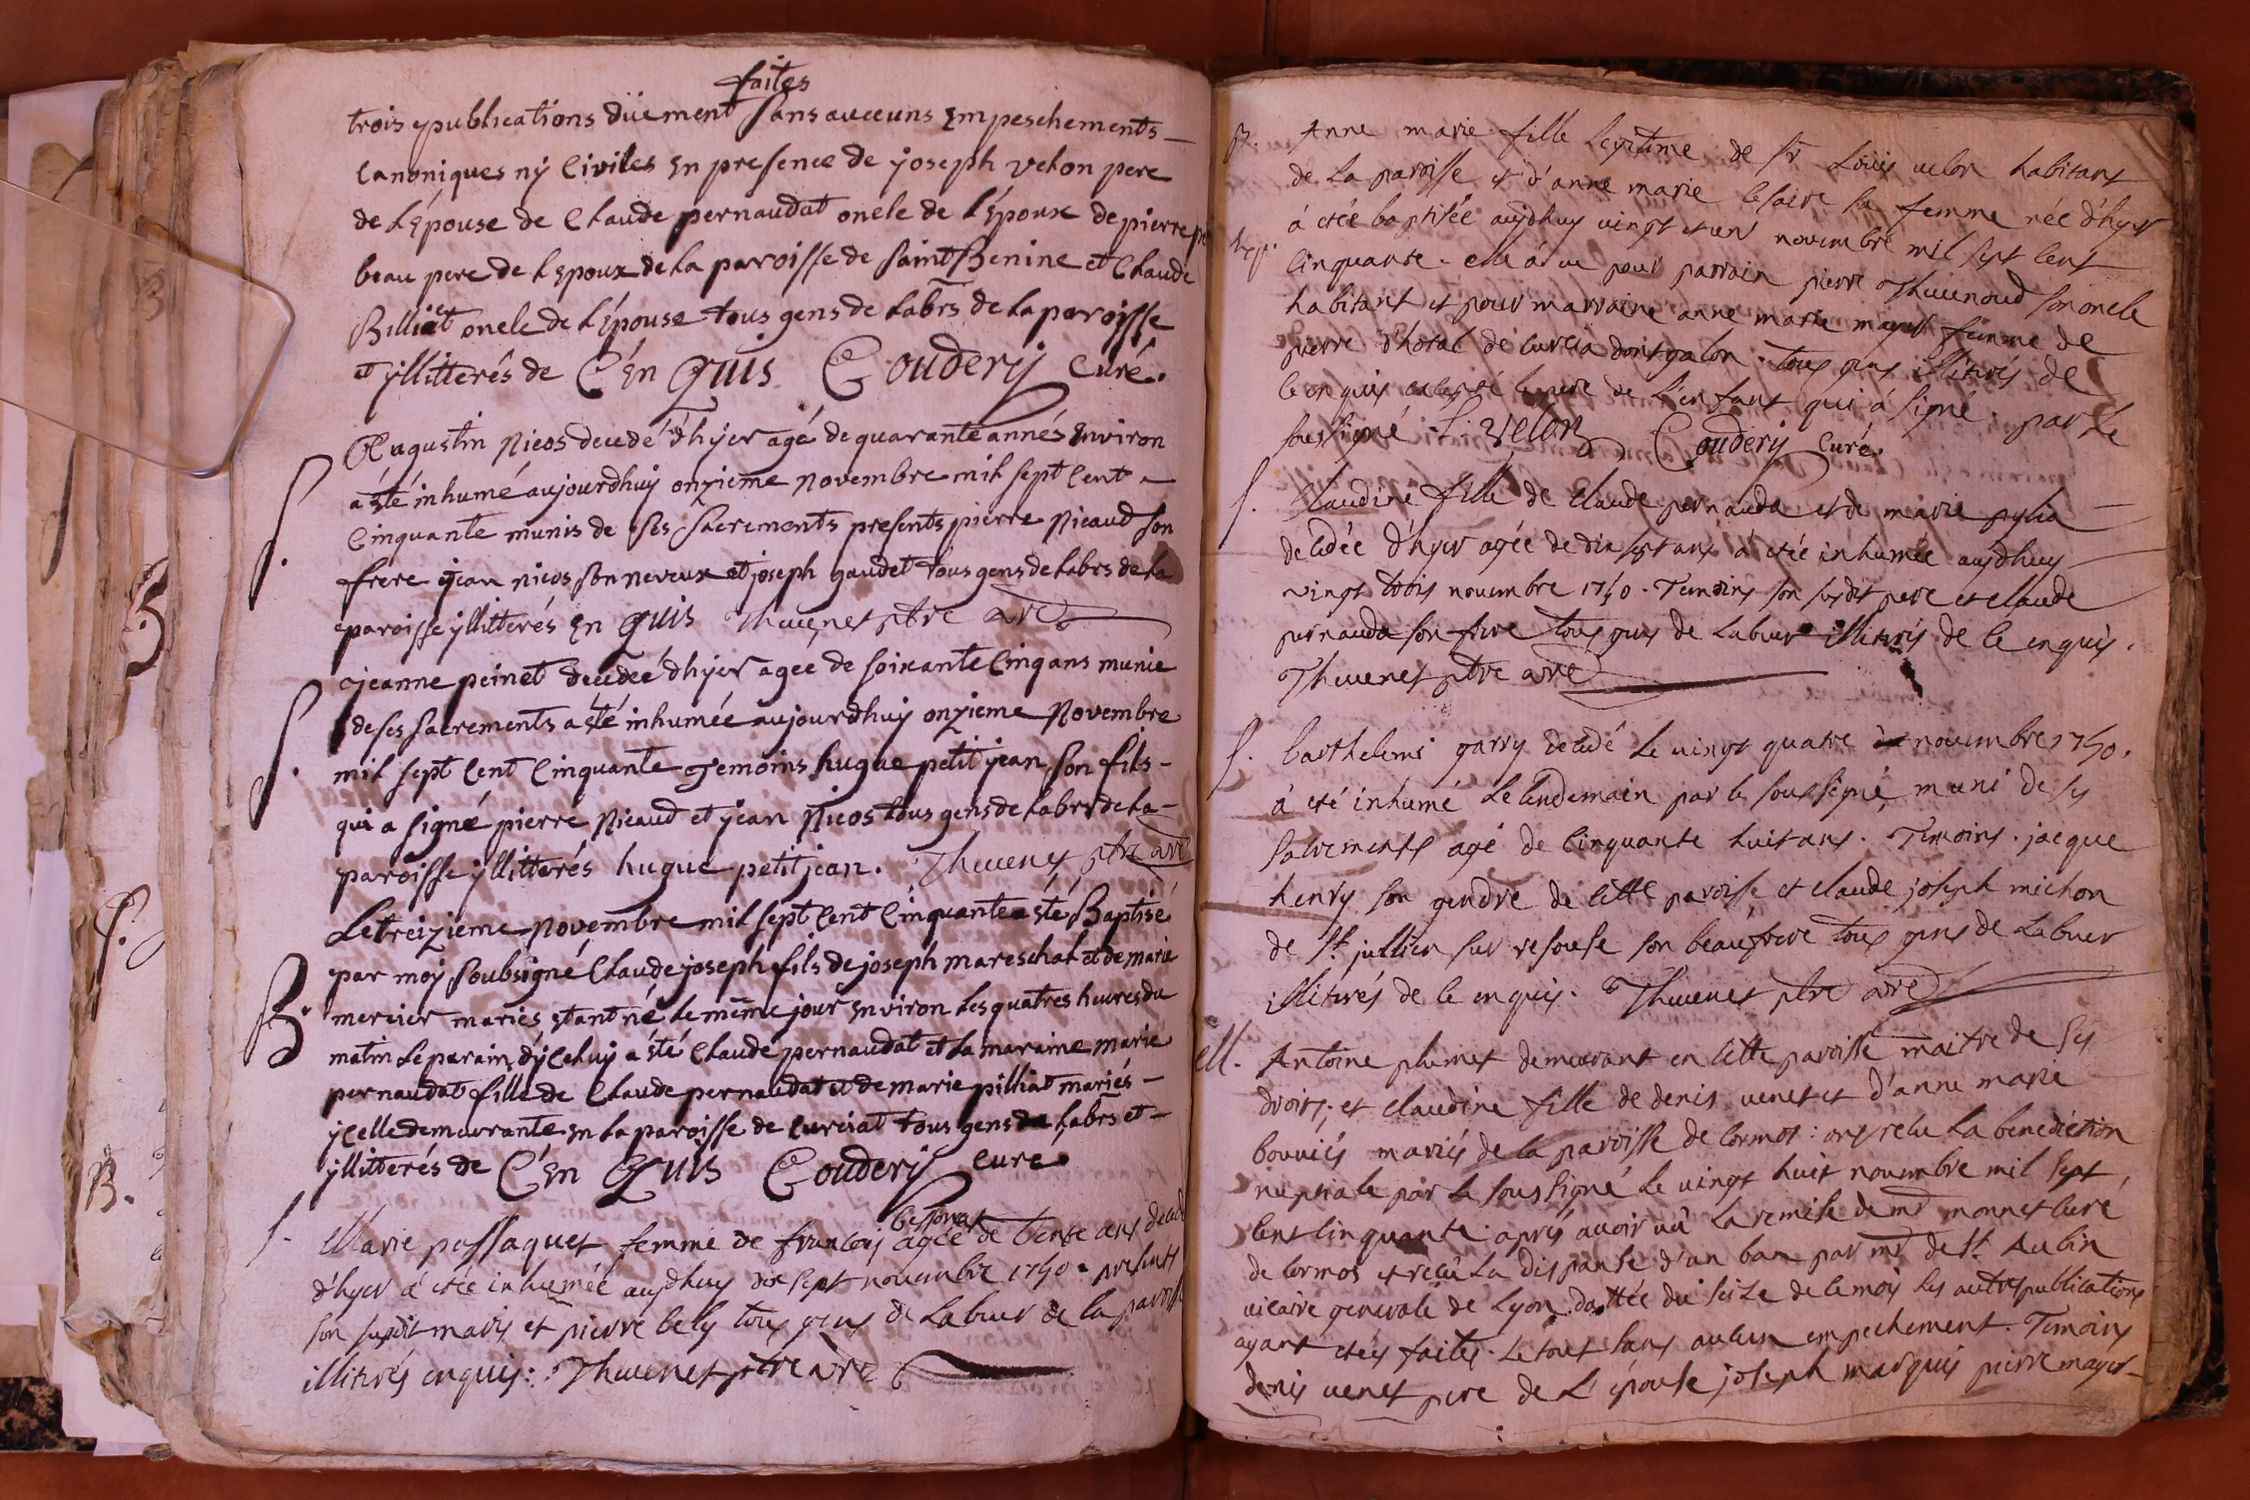 faites
trois publications düement sans auccuns Empeschements
Canoniques nÿ Civiles En presence de joseph Velon pere
de L'Épouse de Claude pernaudat oncle de L'Époux de pierre
beau pere de L'Epoux de La paroisse de Saint Benine et Claude
Billiet oncle de L'Épouse tous gens de Labrs de La paroisse
et ÿllitterés de C'En Quis Couderij Curé.
S. Augustin Nicos decedé d'hÿer agé de quarante années Environ
a été inhumé aujourdhuij onzieme Novembre mil sept Cent
Cinquante munis de ses sacrements presents pierre Nicaud son
frere jean nicos son neveux et joseph gaudet tous gens de Labrs de La
paroisse ÿllitterés En Quis Thevenet ptre vre
S. jeanne peinet decedée d'hÿer agee de soixante Cinq ans munie
de ses sacrements a été inhumée aujourdhuij onzieme Novembre
mil sept Cent Cinquante Temoins hugue petit jean son fils
qui a signé pierre Nicaud et jean Nicos tous gens de Labrs de La
paroisse ÿllitterés hugue petitjean. Thevenet ptre vre
Le treizieme Novembre mil sept Cent Cinquante a été Baptisé
par moÿ soubsigné Claude joseph fils de joseph mareschal et de marie
B. mercier mariés Etant né Le même jour Environ Les quatres heures du
matin Le parain d'ÿCeluÿ a été Claude pernaudat et La maraine marie
pernaudat fille de Claude pernaudat et de marie pilliat mariés
ÿCelle demeurante En La paroisse de Curciat tous gens de Labrs et
ÿllitterés de C'En Quis Couderij Curé
bessonat
S. Marie passaquet femme de francois agée de trente ans decedé
d'hyer a étée inhumée aujdhuy dix sept novembre 1750. presents
son susdit maris et pierre bely tous gens de Labeur de la paroisse
illiterés enquis: Thevenet ptre vre
B. Anne marie fille Legitime de sr Loüis velon habitant
de La paroisse et d'anne marie sa femme née d'hyer
à étée baptisée aujdhuy vingt et un novembre mil sept Cent
Cinquante. elle à eu pour parrain pierre Thevenoud son oncle
habitant et pour marraine anne marie mayet femme de
pierre d'hotal de curcia dongalon. tous gens illiterés de
ce enquis excepté le pere de L'enfant qui a signé. par Le
soussigné L. velon Couderij Curé.
S. Claudine fille de Claude pernauda et de marie pylia
décédée d'hyer agée de dix sept ans à étée inhumée aujdhuy
vingt trois novembre 1750. Temoins son susdit pere et Claude
pernauda son frere tous gens de Labeur illiterés de ce enquis.
Thevenet ptre vre
S. barthelemi garry decedé Le vingt quatre novembre 1750.
à été inhumé Le lendemain par le soussigné, muni de ses
sacrements agé de Cinquante huit ans. Temoins. jacque
henry son gendre de Cette paroisse et claude joseph michon
de St. jullien sur resouse son beaufrere tous gens de Labeur
illiterés de ce enquis. Thevenet ptre vre
M. Antoine plumet demeurant en Cette paroisse maitre de ses
droits; et claudine fille de denis venet et d'anne marie
bouviés mariés de la paroisse de Cormos: ont reçu La benediction
nuptiale par Le soussigné Le vingt huit novembre mil sept
Cent Cinquante. aprés avoir vû La remise de mr monnet Curé
de Cormos et reçû La dispanse d'un ban par mr de St. Aubin
vicaire generale de Lyon dattée du seize de ce mois Les autres publications
ayant étés faites. Le tout sans aucun empechement. Temoins
denis venet pere de L'épouse joseph marquis pierre mayet